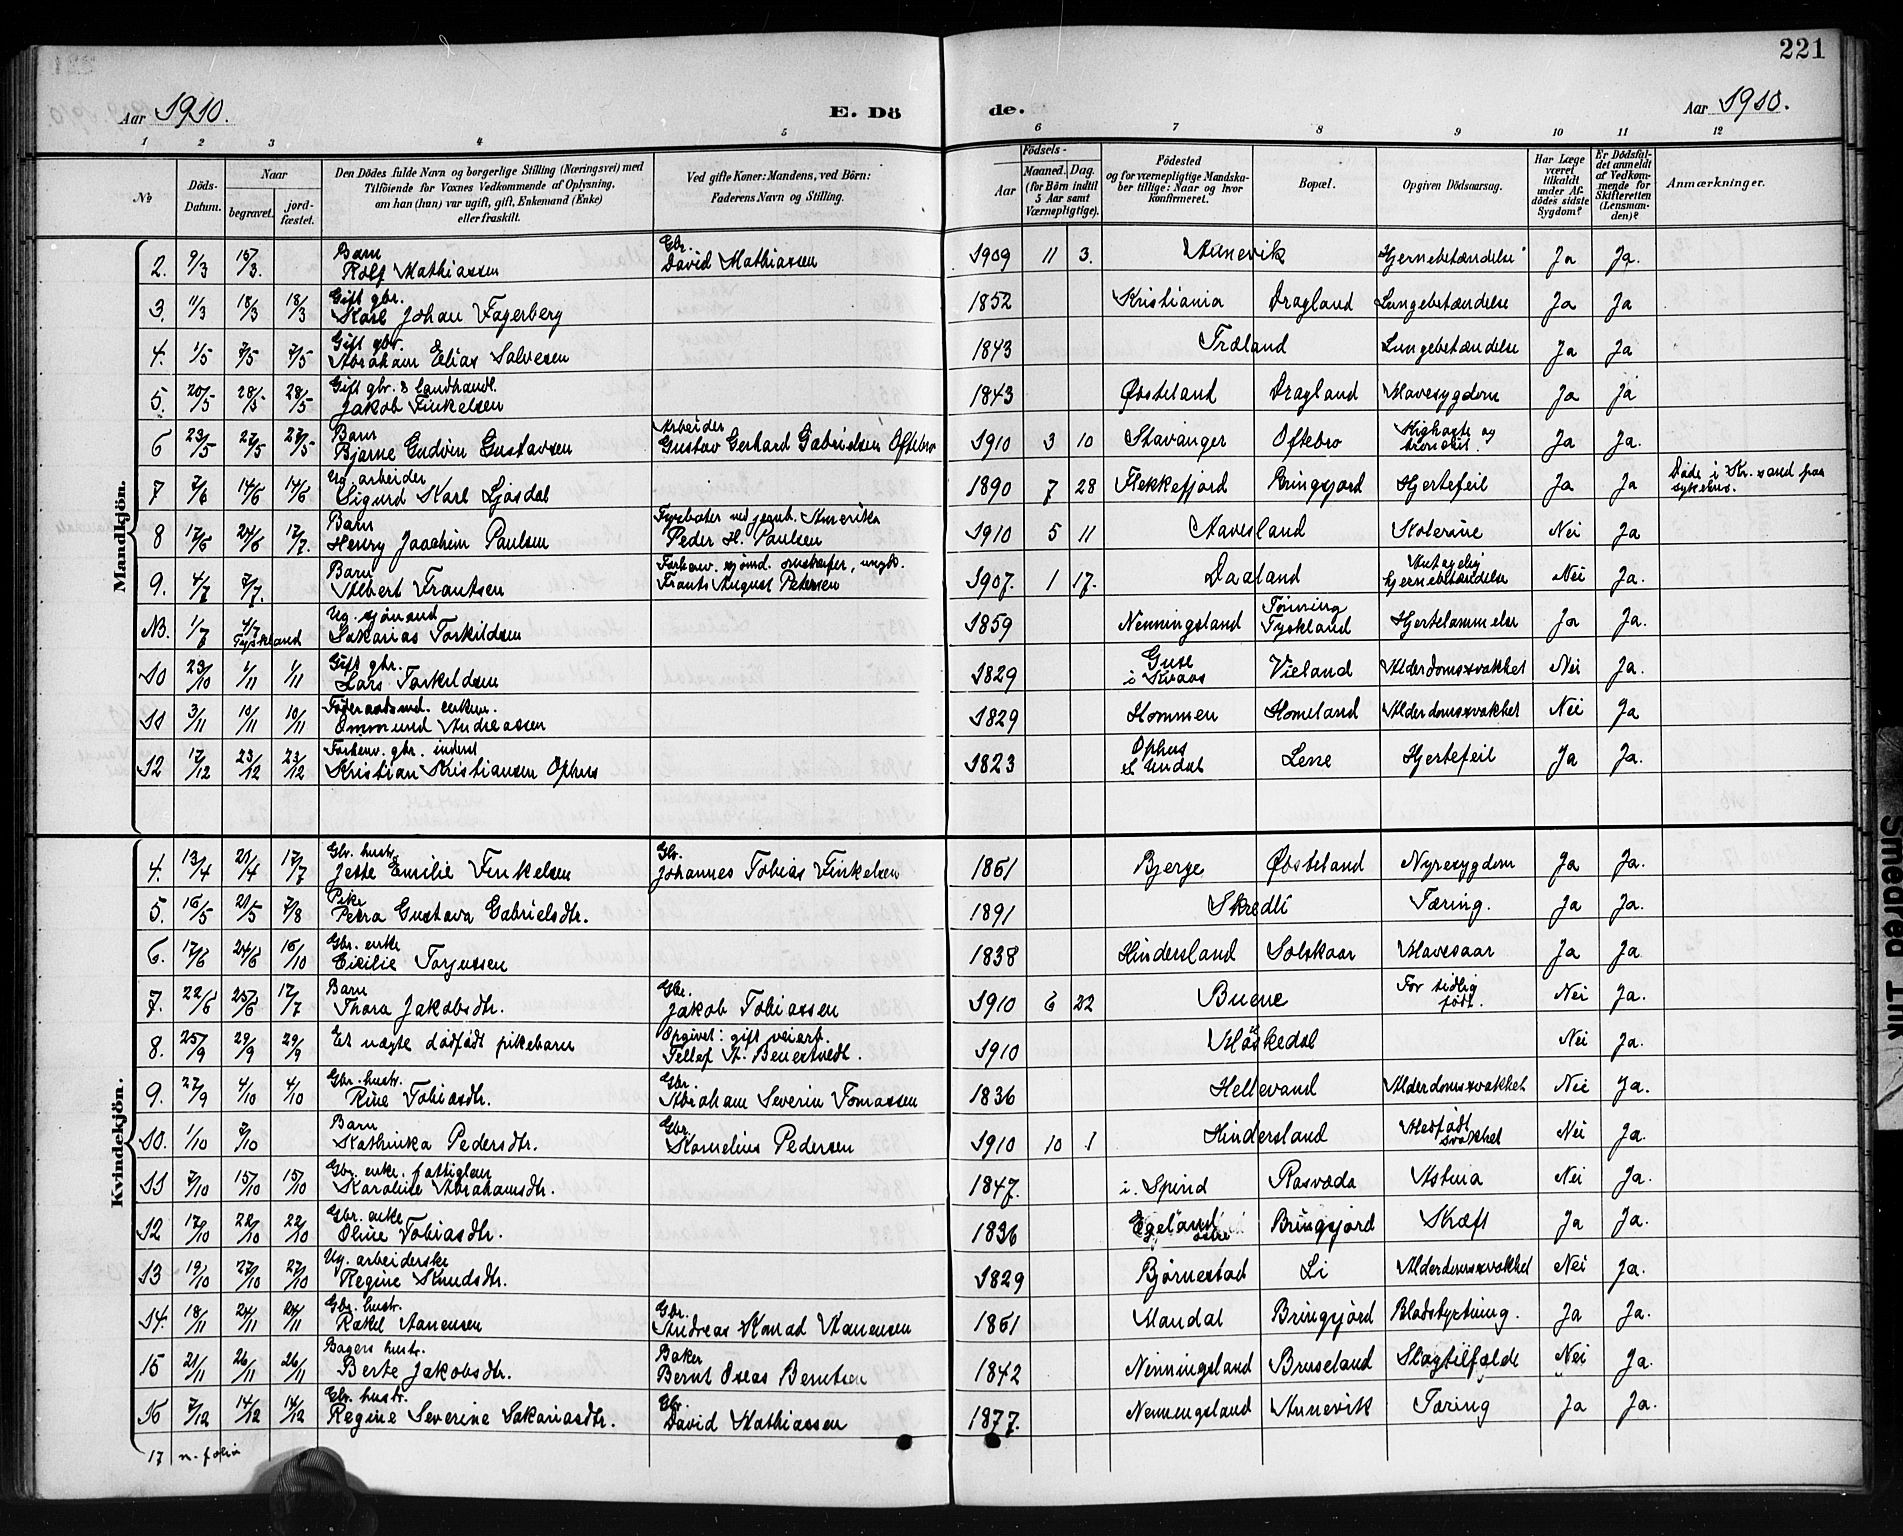 221
Aar 1910.
E. Dö de.
Aar 1910.
1 2 3 4 5 6 7 8 9 10 11 12
№
Döds-Datum.
Naar
begravet.
jord-fæstet.
Den Dödes fulde Navn og borgerlige Stilling (Næringsvei) med
Tilföiende for Voxnes Vedkommende af Oplysning,
om han (hun) var ugift, gift, Enkemand (Enke)
eller fraskilt.
Ved gifte Koner: Mandens, ved Börn:
Faderens Navn og Stilling.
Aar
Födsels-
Maaned. Dag.
(for Börn indtil
5 Aar samt
Værnepligtige).
Födested
og for værnepligtige Mandska-
ber tillige: Naar og hvor
konfirmeret.
Bopæl.
Opgiven Dödsaarsag.
Har Læge
været
tilkaldt
under Af-
dödes sidste
Sygdom?
Er Dödsfal-
det anmeldt
af Vedkom-
mende for
Skifteretten
(Lensman-
den)?
Anmærkninger.
Mandkjön.
2. 9/3 15/3. Barn Rolf Mathiassen Gbr. David Mathiassen 1909 11 3. Aunevik Hjernebetændelse Ja Ja.
3. 11/3 18/3 18/3 Gift gbr. Karl Johan Fagerberg 1852 Kristiania Dragland Lungebetændelse Ja Ja
4. 1/5 7/5 7/5 Gift gbr. Abraham Elias Salvesen 1843 Fræland Lungebetændelse Ja Ja
5. 20/5 28/5 28/5 Gift gbr. & landhandl. Jakob Finkelsen 1843 Øbsteland Dragland Mavesygdom Ja Ja
6 23/5 27/5 27/5 Barn Bjarne Gudvin Gustavsen Arbeider Gustav Gerhard Gabrielsen Oftebro 1910 3 10 Stavanger Oftebro Kighoste og bronkit. Ja Ja.
7 7/6 14/6 14/6 Ug. arbeider Sigurd Karl Ljosdal 1890 7 28 Flekkefjord Bringsjord Hjertefeil Ja Ja Døde i Kr.sand paa sykehus.
8 17/6 24/6 17/7. Barn Henry Joachim Paulsen Fyrbøter ved jernb. Amerika Peder H. Paulsen 1910 5 11 Aavesland Kolerine Nei Ja
9. 4/7 7/7. Barn Albert Frantsen Forhenv. sjømd. Frants August Petersen 1907. 1 17. Daaland Antagelig hjernebetændelse Nei Ja.
NB. 1/7 4/7 Tyskland Ug. sjømand Sakarias Torkildsen 1859 Nenningsland Tønning Tyskland Hjertelammelse Ja Ja.
10 23/10 1/11 1/11 Gift gbr. Lars Torkildsen 1829 Guse i Kvaas Vieland Alderdomssvakhet Nei Ja.
11 3/11 10/11 10/11 Føderaadsmd. enkem. Ommund Andreassen 1829 Hommen Homeland Alderdomssvakhet Nei Ja
12 17/12 23/12 23/12 Forhenv. gbr. inderst Kristian Kristiansen Ophus 1823 Ophus S. Undal Lene Hjertefeil Ja Ja.
Kvindekjön.
4. 13/4 21/4 17/7 Gbr. hustr. Jette Emilie Finkelsen Gbr. Johannes Tobias Finkelsen 1861 Bjerge Øbsteland Nyresygdom Ja Ja.
5. 16/5 21/5 7/8 Pike Petra Gustava Gabrielsdtr. 1891 Skredli Tæring. Ja Ja.
6. 17/6 24/6 16/10 Gbr. enke Cicilie Torjussen 1838 Hindersland Solskaar Mavesaar Ja Ja
7. 22/6 25/6 17/7 Barn Thora Jakobsdtr. Gbr. Jakob Tobiassen 1910 6 22 Buene For tidlig født. Nei Ja.
8. 25/9 29/9 29/9 Et uægte dødfødt pikebarn Opgivet: gift veiarb. Tellef A. Benestvedt. 1910 Møskedal Nei Ja.
9. 27/9 4/10 4/10 Gbr. hustr. Rine Tobiasdtr. Gbr. Abraham Severin Tomassen 1836 Hellevand Alderdomssvakhet Nei Ja.
10. 1/10 7/10 Barn Kathinka Pedersdtr. Gbr. Kornelius Pedersen 1910 10 1 Hindersland Medfødt svakhet Nei Ja.
11 7/10 15/10 15/10 Gbr. enke. fattiglem Karoline Abrahamsdtr. 1847. i. Spind Rasvada Astma Nei Ja.
12 17/10 22/10 22/10 Gbr. enke Oline Tobiasdtr. 1836 Egeland østre Bringsjord Kræft Ja Ja.
13 19/10 27/10 27/10 Ug. arbeiderske Regine Knudsdtr. 1829 Bjørnestad Li Alderdomssvakhet Nei Ja.
14. 18/11 24/11 24/11 Gbr. hustr. Rakel Aanensen Gbr. Andreas Konrad Aanensen 1861 Mandal Bringsjord Blodstyrtning. Ja Ja.
15 21/11 26/11 26/11 Bagers hustr. Berte Jakobsdtr. Baker Bernt Oseas Berntsen 1842 Nenningsland Bruseland Slagtilfælde Nei Ja.
16 7/12 14/12 14/12 Gbr. hustr. Regine Severine Sakariasdtr. Gbr. David Mathiassen 1877. Nenningsland Aunevik Tæring Ja Ja.
17 n. folio